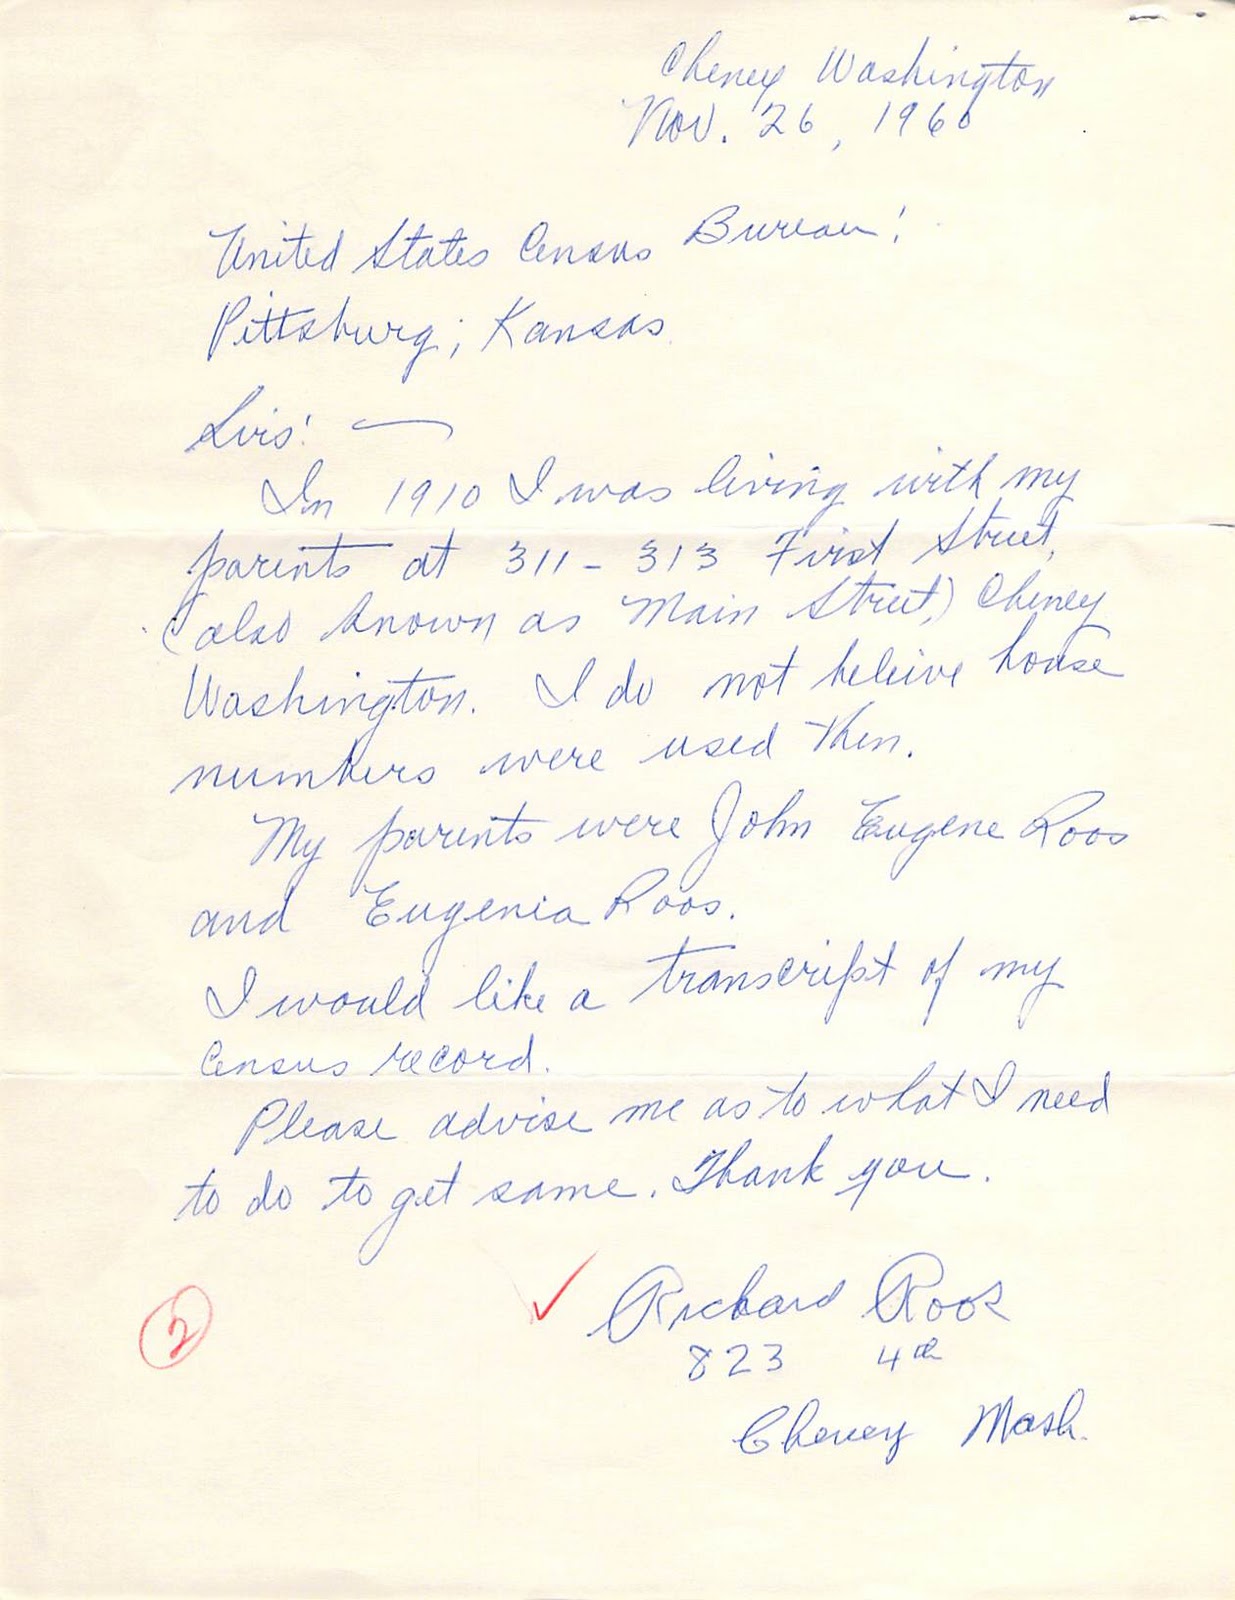 Cheney Washington
Nov. 26, 1960
United States Census Bureau!
Pittsburg; Kansas
Sirs! —
In 1910 I was living with my
parents at 311-313 First Street,
(also known as Main Street,) Cheney
Washington. I do not beleive house
numbers were used then.
My parents were John Eugene Roos
and Eugenia Roos.
I would like a transcript of my
Census record.
Please advise me as to what I need
to do to get same. Thank you.
✓ Richard Roos
2
823 4th
Cheney Wash.